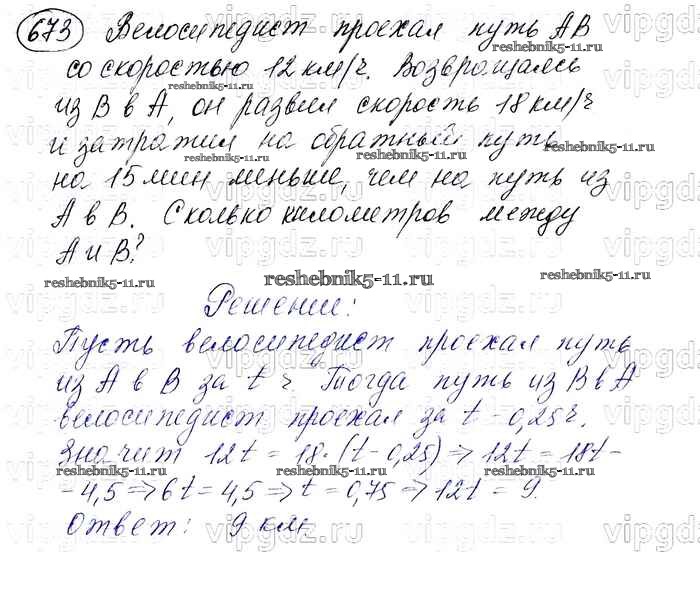 673 Велосипедист проехал путь АВ
со скоростью 12 км/ч. Возвращаясь
из В в А, он развил скорость 18 км/ч
и затратил на обратный путь
на 15 мин меньше, чем на путь из
А в В. Сколько километров между
А и В?
Решение:
Пусть велосипедист проехал путь
из А в В за t ч. Тогда путь из В в А
велосипедист проехал за t - 0,25 ч.
Значит 12t = 18·(t - 0,25) => 12t = 18t -
- 4,5 => 6t = 4,5 => t = 0,75 => 12t = 9.
Ответ: 9 км.
reshebnik5-11.ru
vipgdz.ru